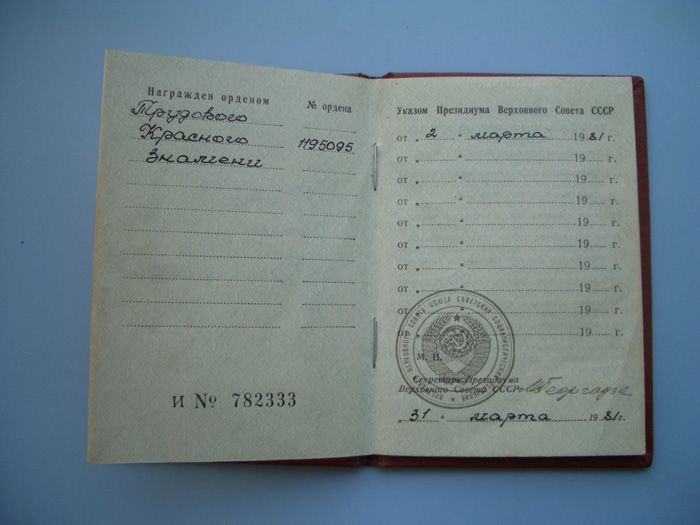 Награжден орденом № ордена
Трудового
Красного 1195095
Знамени
И № 782333
Указом Президиума Верховного Совета СССР
от „ 2 “ марта 1981 г.
от „ “ 19 г.
от „ “ 19 г.
от „ “ 19 г.
от „ “ 19 г.
от „ “ 19 г.
от „ “ 19 г.
от „ “ 19 г.
от „ “ 19 г.
от „ “ 19 г.
М. П.
Секретарь Президиума
Верховного Совета СССР Георгадзе
„ 31 “ марта 1981 г.